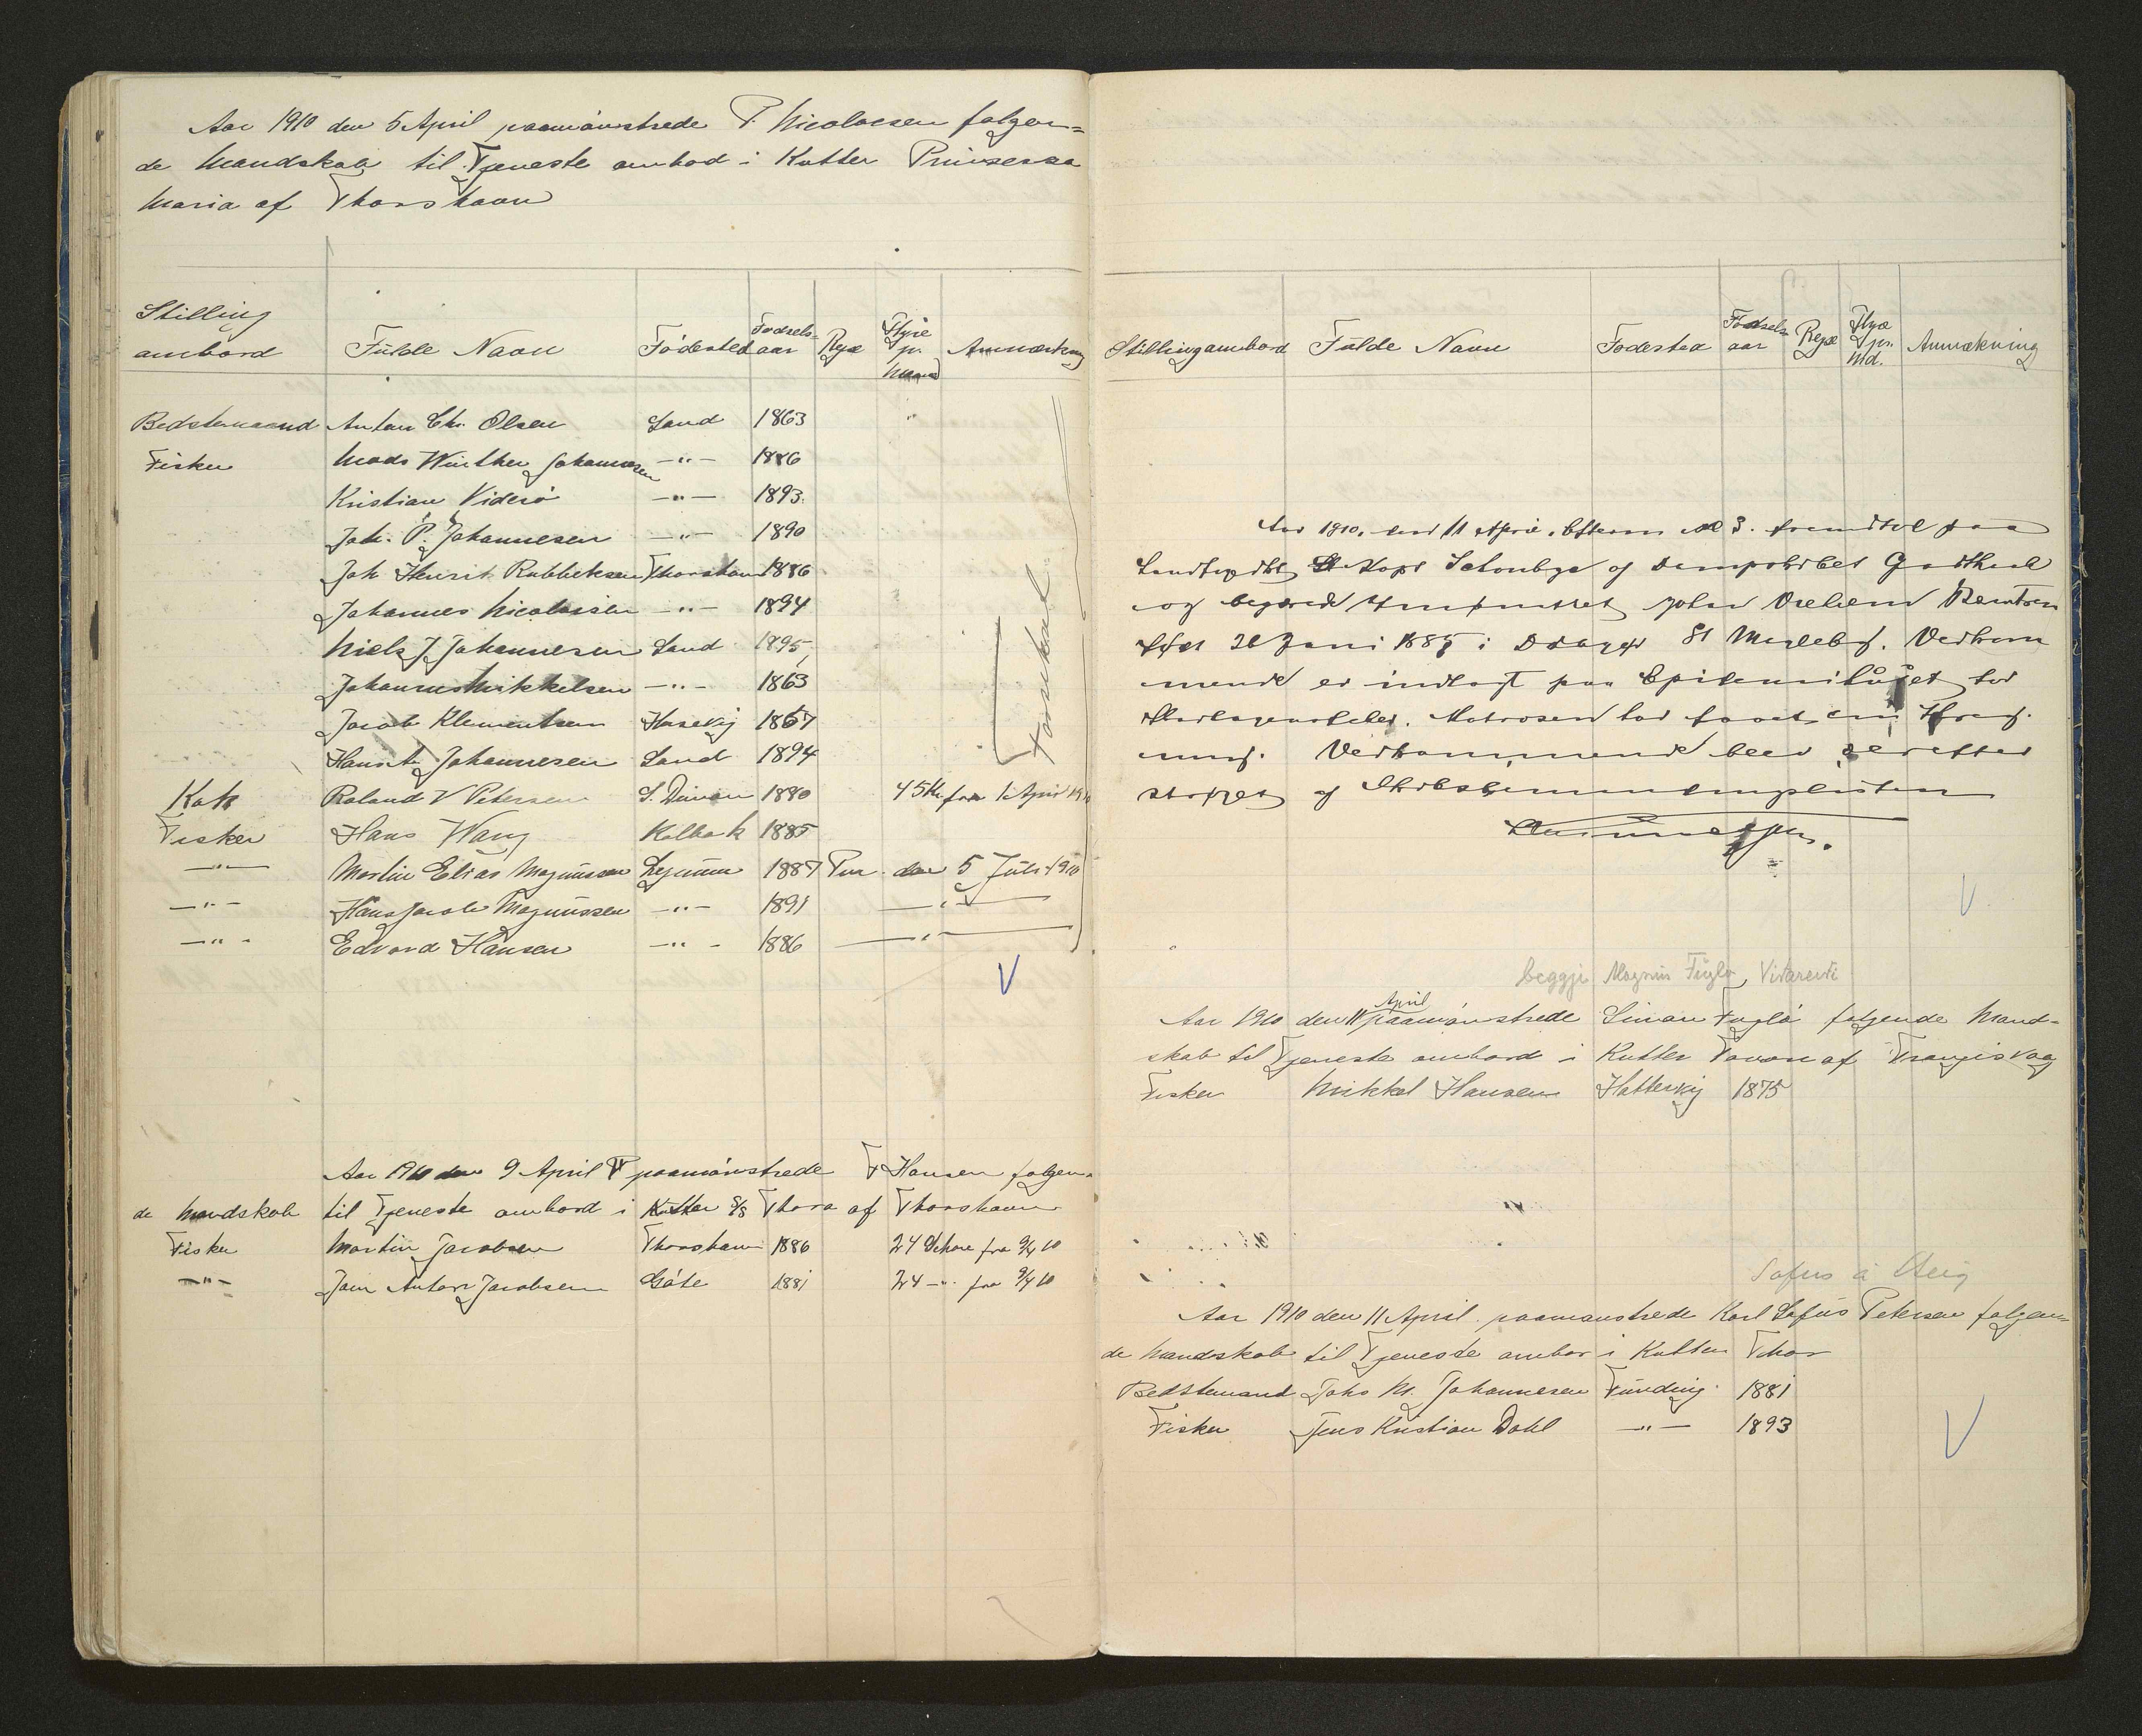 Aar 1910 den 5 April paamönstrede P. Nicolaesen følgen=
de Mandskab til Tjeneste ombod i Kutter Prinsessa
Maria af Thorshavn
Stilling ombord Fulde Navn Födested Fodsels-aar Rejse Hyre pr. Maaned Anmærkning
Bedstemaand Anton Chr. Olsen Sand 1863
Fisker Mads Winther Johannesen -"- 1886
Kristian Viderö -"- 1893
Joh. P. Johannesen -"- 1890
Joh Henrik Thorshavn 1886
Johannes Nicolaisen -"- 1894
Niels J. Johannesen Sand 1895
Johannes Mikkelsen -"- 1863
Jacob Klementsen Husevig 1867
Johannesen Sand 1894
Kok Roland V Petersen S. Dimon 1890 45 Kr fra 1 April 1910
Fisker Hans Wang Kolbak 1885
-"- Martin Elias Magnussen Lejnum 1887 den 5 Juli 1910
-"- Hans Jacob Magnussen -"- 1891 -"-
-"- Edvard Hansen -"- 1886 -"-
Aar 1910 den 9 April paamönstrede Hansen følgen-
de Mandskab til Tjeneste ombord i Kutter S/S Thora af Thorshavn
Fisker Martin Jacobsen Thorshavn 1886 24 fra 9/4 10
-"- Anton Jacobsen Göte 1881 24 -"- fra 9/4 10
Stilling ombord Fulde Navn Fodested Fodsels aar Rejse Hyre pr. Md. Anmækning
Aar 1910. den 11 April. Efterm Kl 3. fremstod paa
Kapt og Dampskibet Godthaab
og begærede John Bentsen
Juni i Dragør St Magleby. Vedkom
mende er indlagt paa for
Matrosen har faaet
Vedkommende blev derefter
af
beggji Magnus Fuglø, Viðareiði
Aar 1910 den 11 April paamönstrede Simon Fuglö følgende Mand-
skab til Tjeneste ombord i Kutter af Trangisvaag
Fisker Mikkel Hansen Hattervig 1875
Sofus á Steig
Aar 1910 den 11 April paamönstrede Karl Sofus Petersen følgen=
de Mandskab til Tjeneste ombor i Kutter Thor
Bedstemand Johs M. Johannesen Funding 1881
Fisker Jens Kristian Dahl -"- 1893